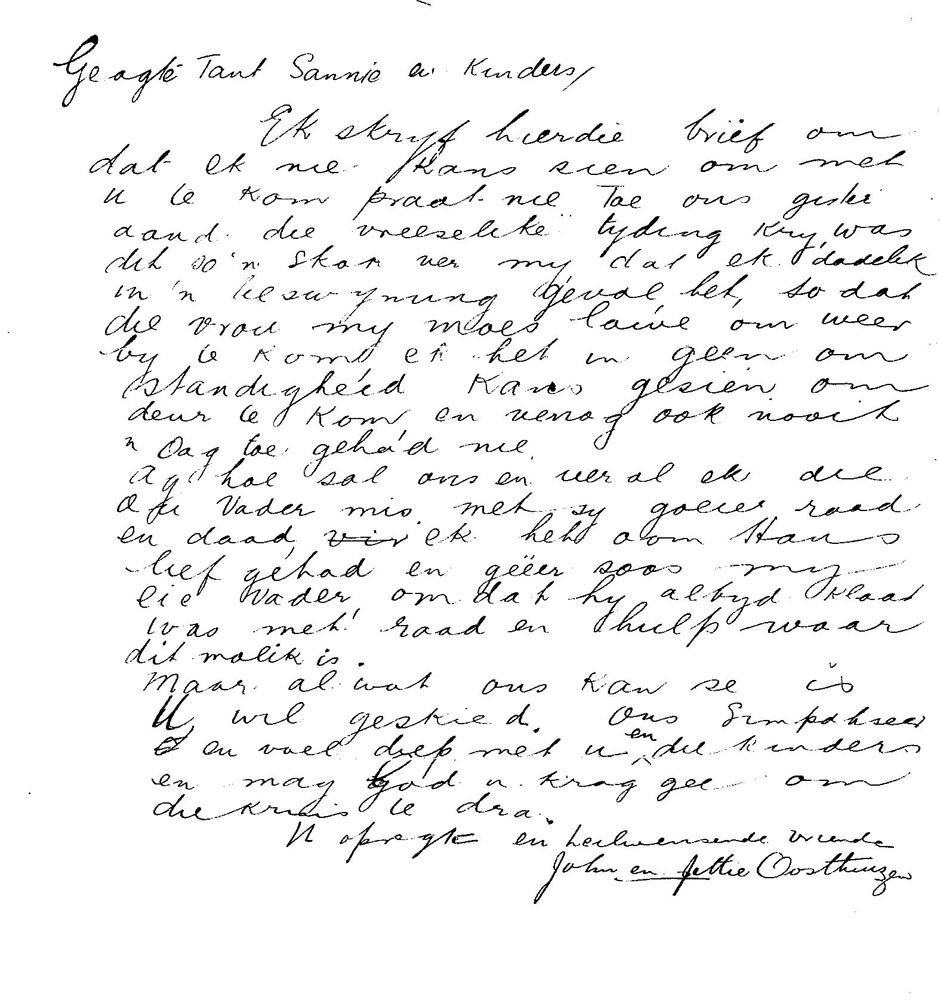 Geagte Tant Sannie en Kinders/
Ek skryf hierdie brief om
dat ek nie kans sien om met
u te kom praat nie Toe ons gister
aand die vreeselike tyding kry, was
dit so 'n skok ver my dat ek dadelik
in 'n geval het, so dat
die vrou my moes lawe om weer
by te kom ek het in geen om
standigheid Kans gesien om
deur te kom, en venag ook nooit
'n Oog toe gehad nie.
Ag hoe sal ons en veral ek die
Ou Vader mis met sy goeie raad
en daad, ek het oom Hans
lief gehad en geëer soos my
eie Vader, om dat hy altyd klaar
was met raad en hulp waar
dit molik is.
Maar al wat ons kan se is
U wil geskied. Ons Simpatiseer
en voel diep met u en die kinders
en mag God u krag gee om
die kruis te dra.
U opregte en heilwensende vriende
John en Jettie Oosthuizen